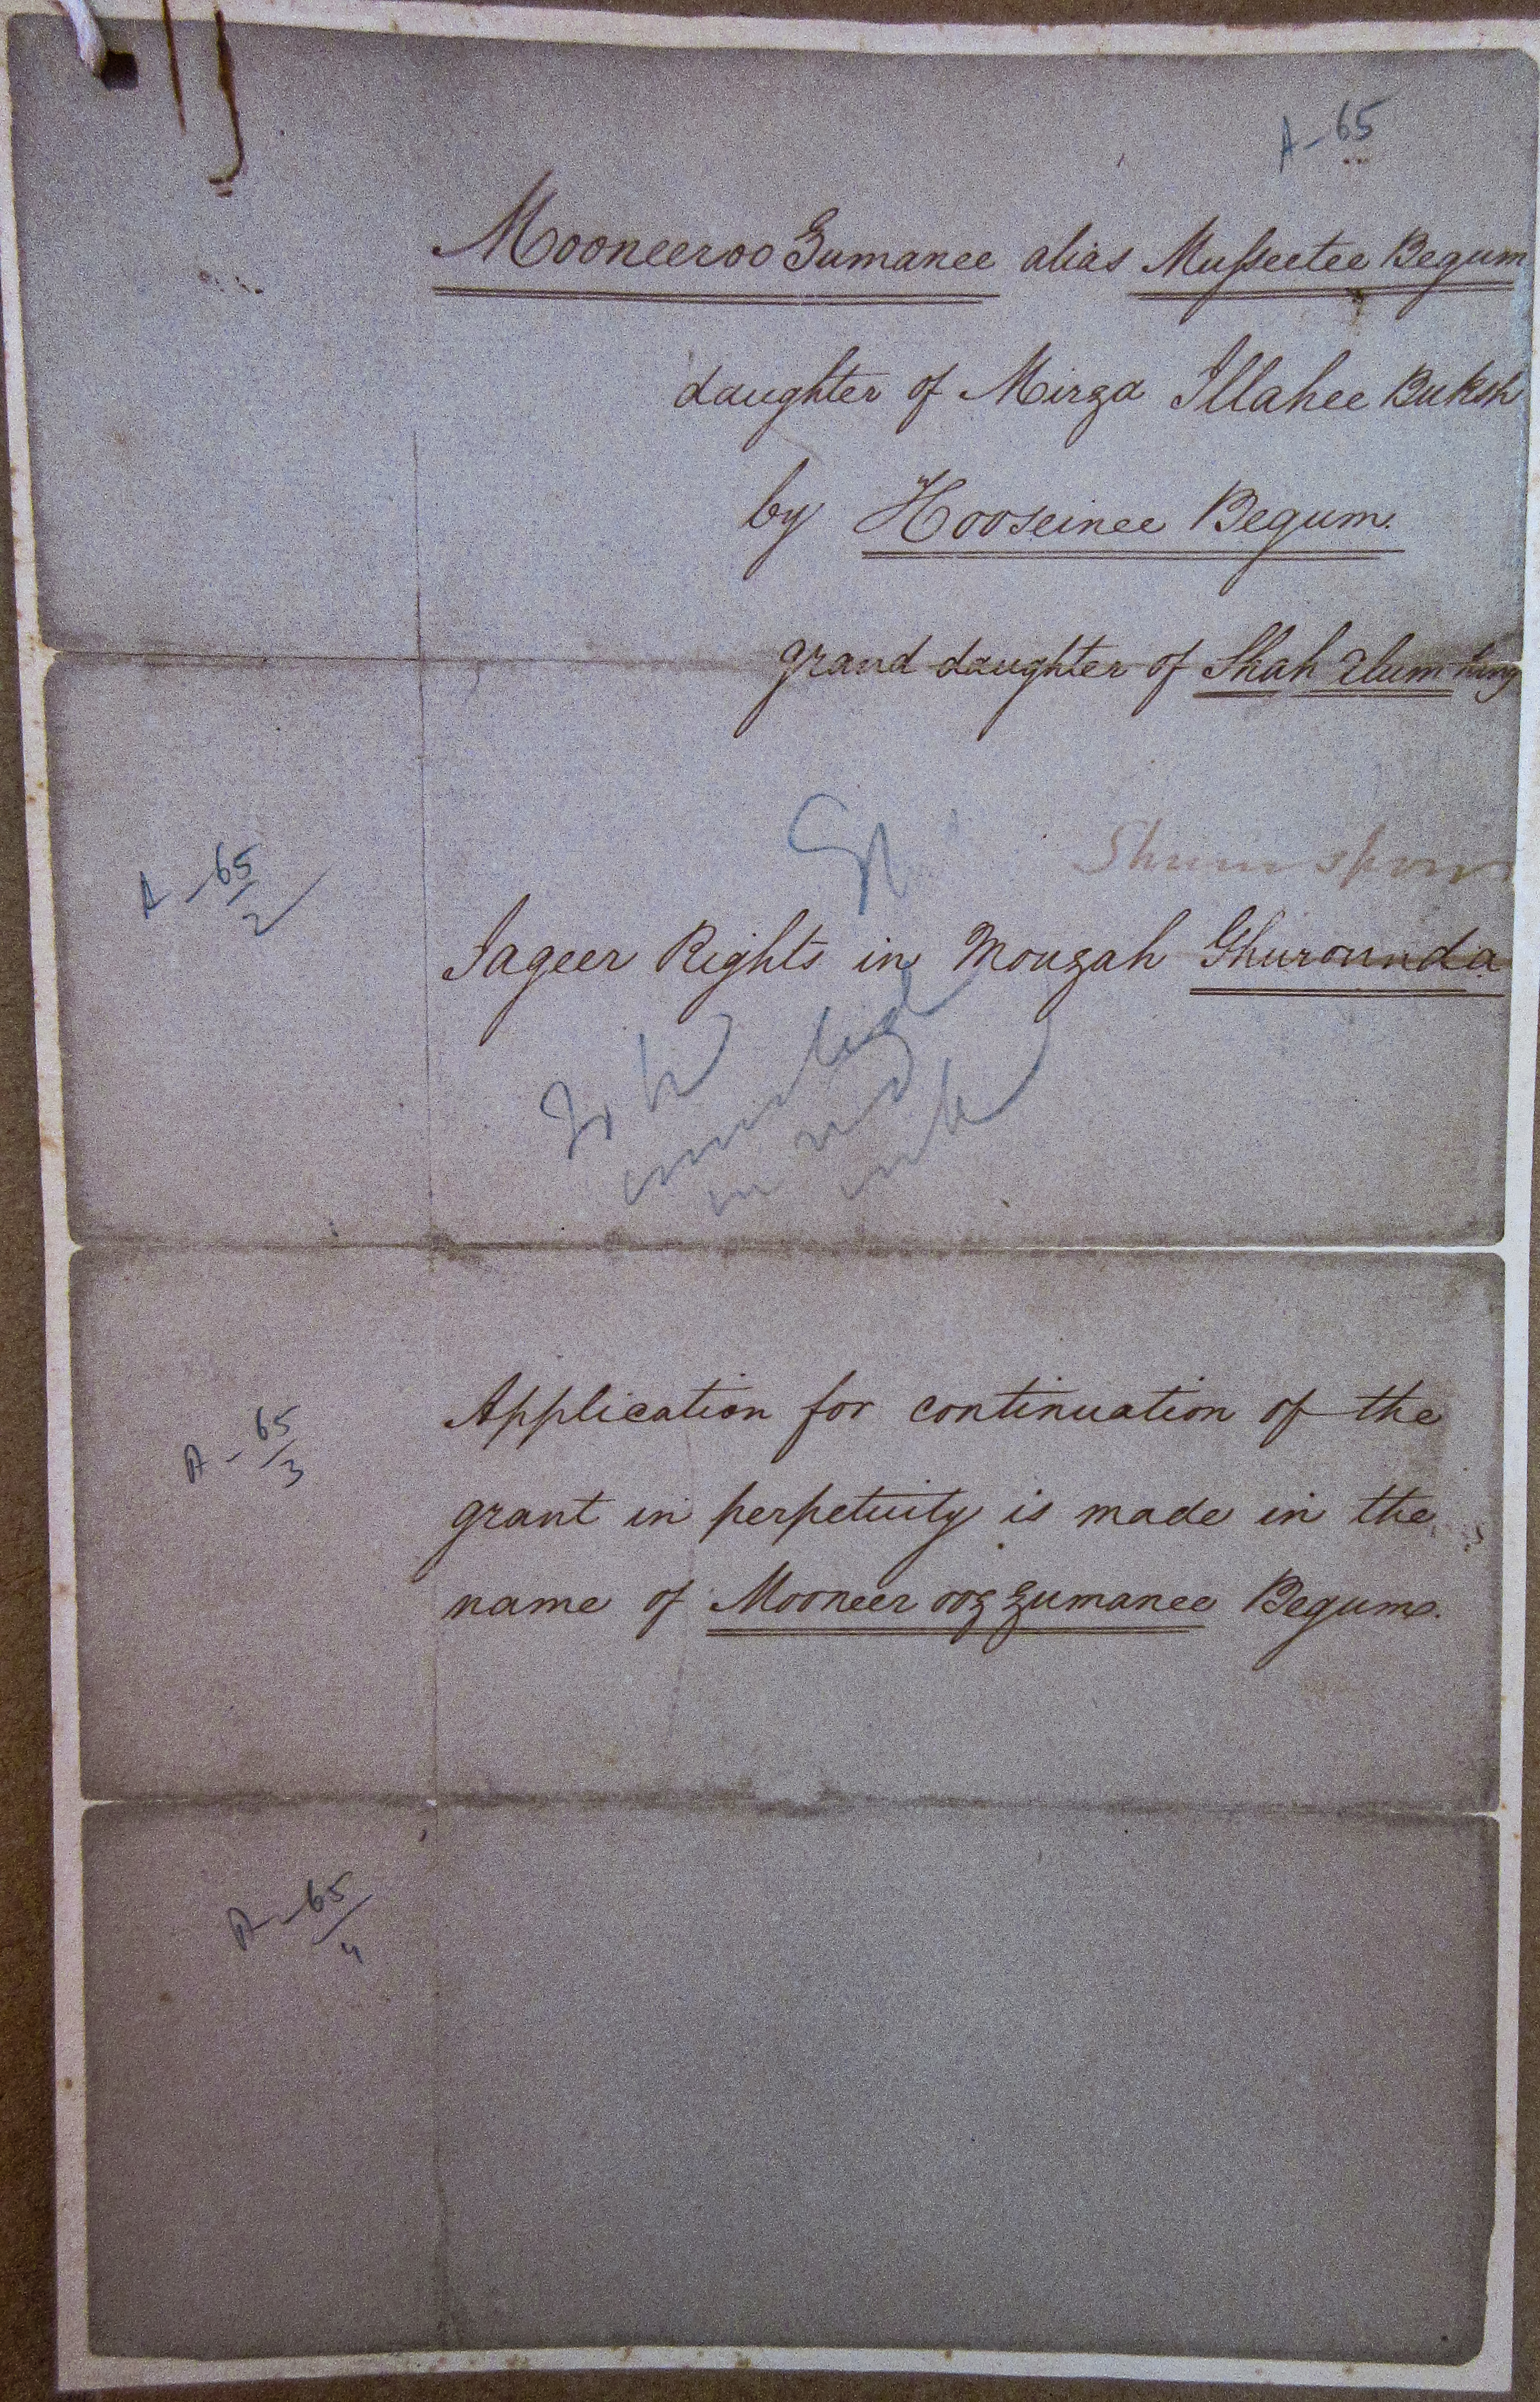 A-65
Mooneeroo Zumanee alias Musseetee Begum
daughter of Mirza Illahee Buksh
by Hooseinee Begum.
grand daughter of Shah Alum King
A-65/2
Jageer Rights in Mouzah Ghurounda
To be
in red
ink
A-65/3
Application for continuation of the
grant in perpetuity is made in the
name of Mooneer ooz zumanee Begum.
A-65/4